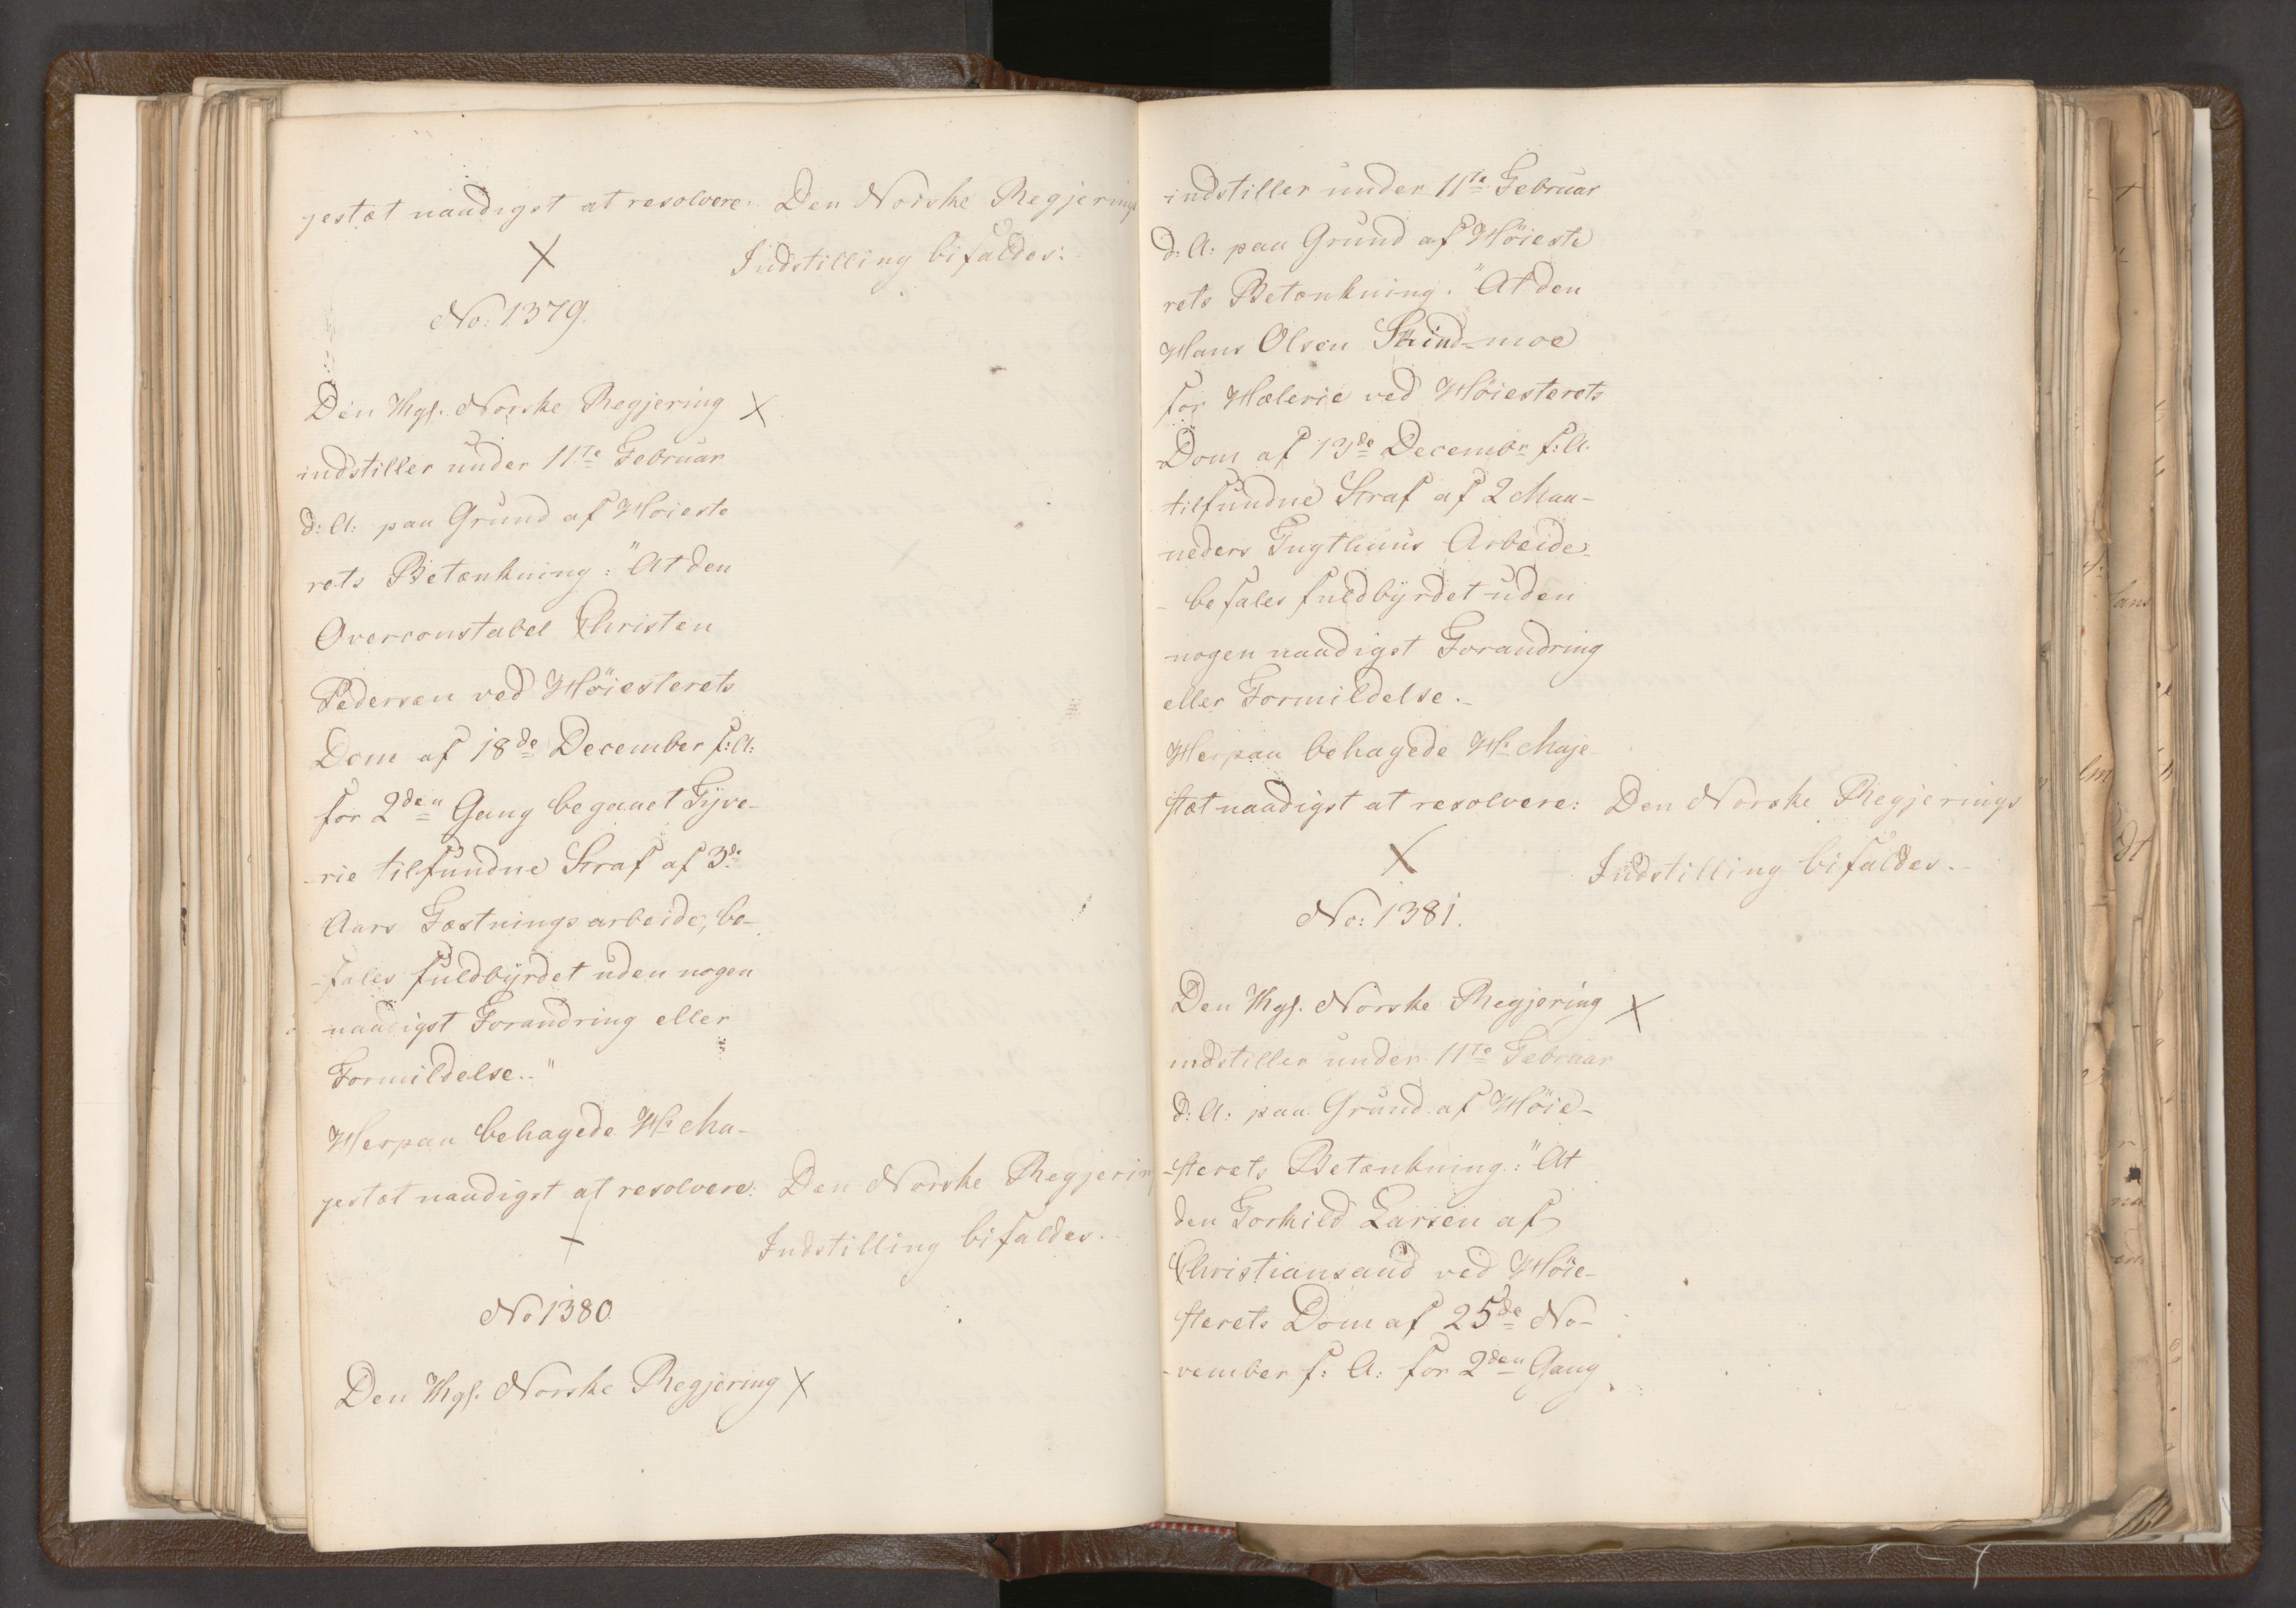 jestæt naadigst at resolvere: Den Norske Regjerings
Indstilling bifaldes:
No: 1379.
Den Kgl. Norske Regjering
indstiller under 11te Februar
d: A: paa Grund af Høieste
rets Betænkning: "At den
Overconstabel Christen
Pedersen ved Höiesterets
Dom af 18de December f: A:
for 2den Gang begaaet Tyve-
-rie tilfundne Straf af 3de
Aars Fæstningsarbeide, be-
-fales fuldbyrdet uden nogen
naadigst Forandring eller
Formildelse.."
Herpaa behagede Hs Ma-
jestæt naadigst at resolvere: Den Norske Regjerin
Indstilling bifaldes.
No 1380
Den Kgl. Norske Regjering
indstiller under 11te Februar
d: A: paa Grund af Höieste
rets Betænkning: "At den
Hans Olsen Skind-moe
for Hælerie ved Höiesterets
Dom af 13de Decembr f: A.
tilfundne Straf af 2 Maa-
neders Tugthuus Arbeide
- befales fuldbyrdet uden
nogen naadigst Forandring
eller Formildelse.-
Herpaa behagede Hs Maje
stæt naadigst at resolvere: Den Norske Regjerings
Indstilling bifaldes.-
No: 1381.
Den Kgl. Norske Regjering
indstiller under 11te Februar
d: A: paa Grund af Höie-
-sterets Betænkning: "At
den Torkild Larsen af
Christiansand ved Höie-
sterets Dom af 25de No-
-vember f: A: for 2den Gang